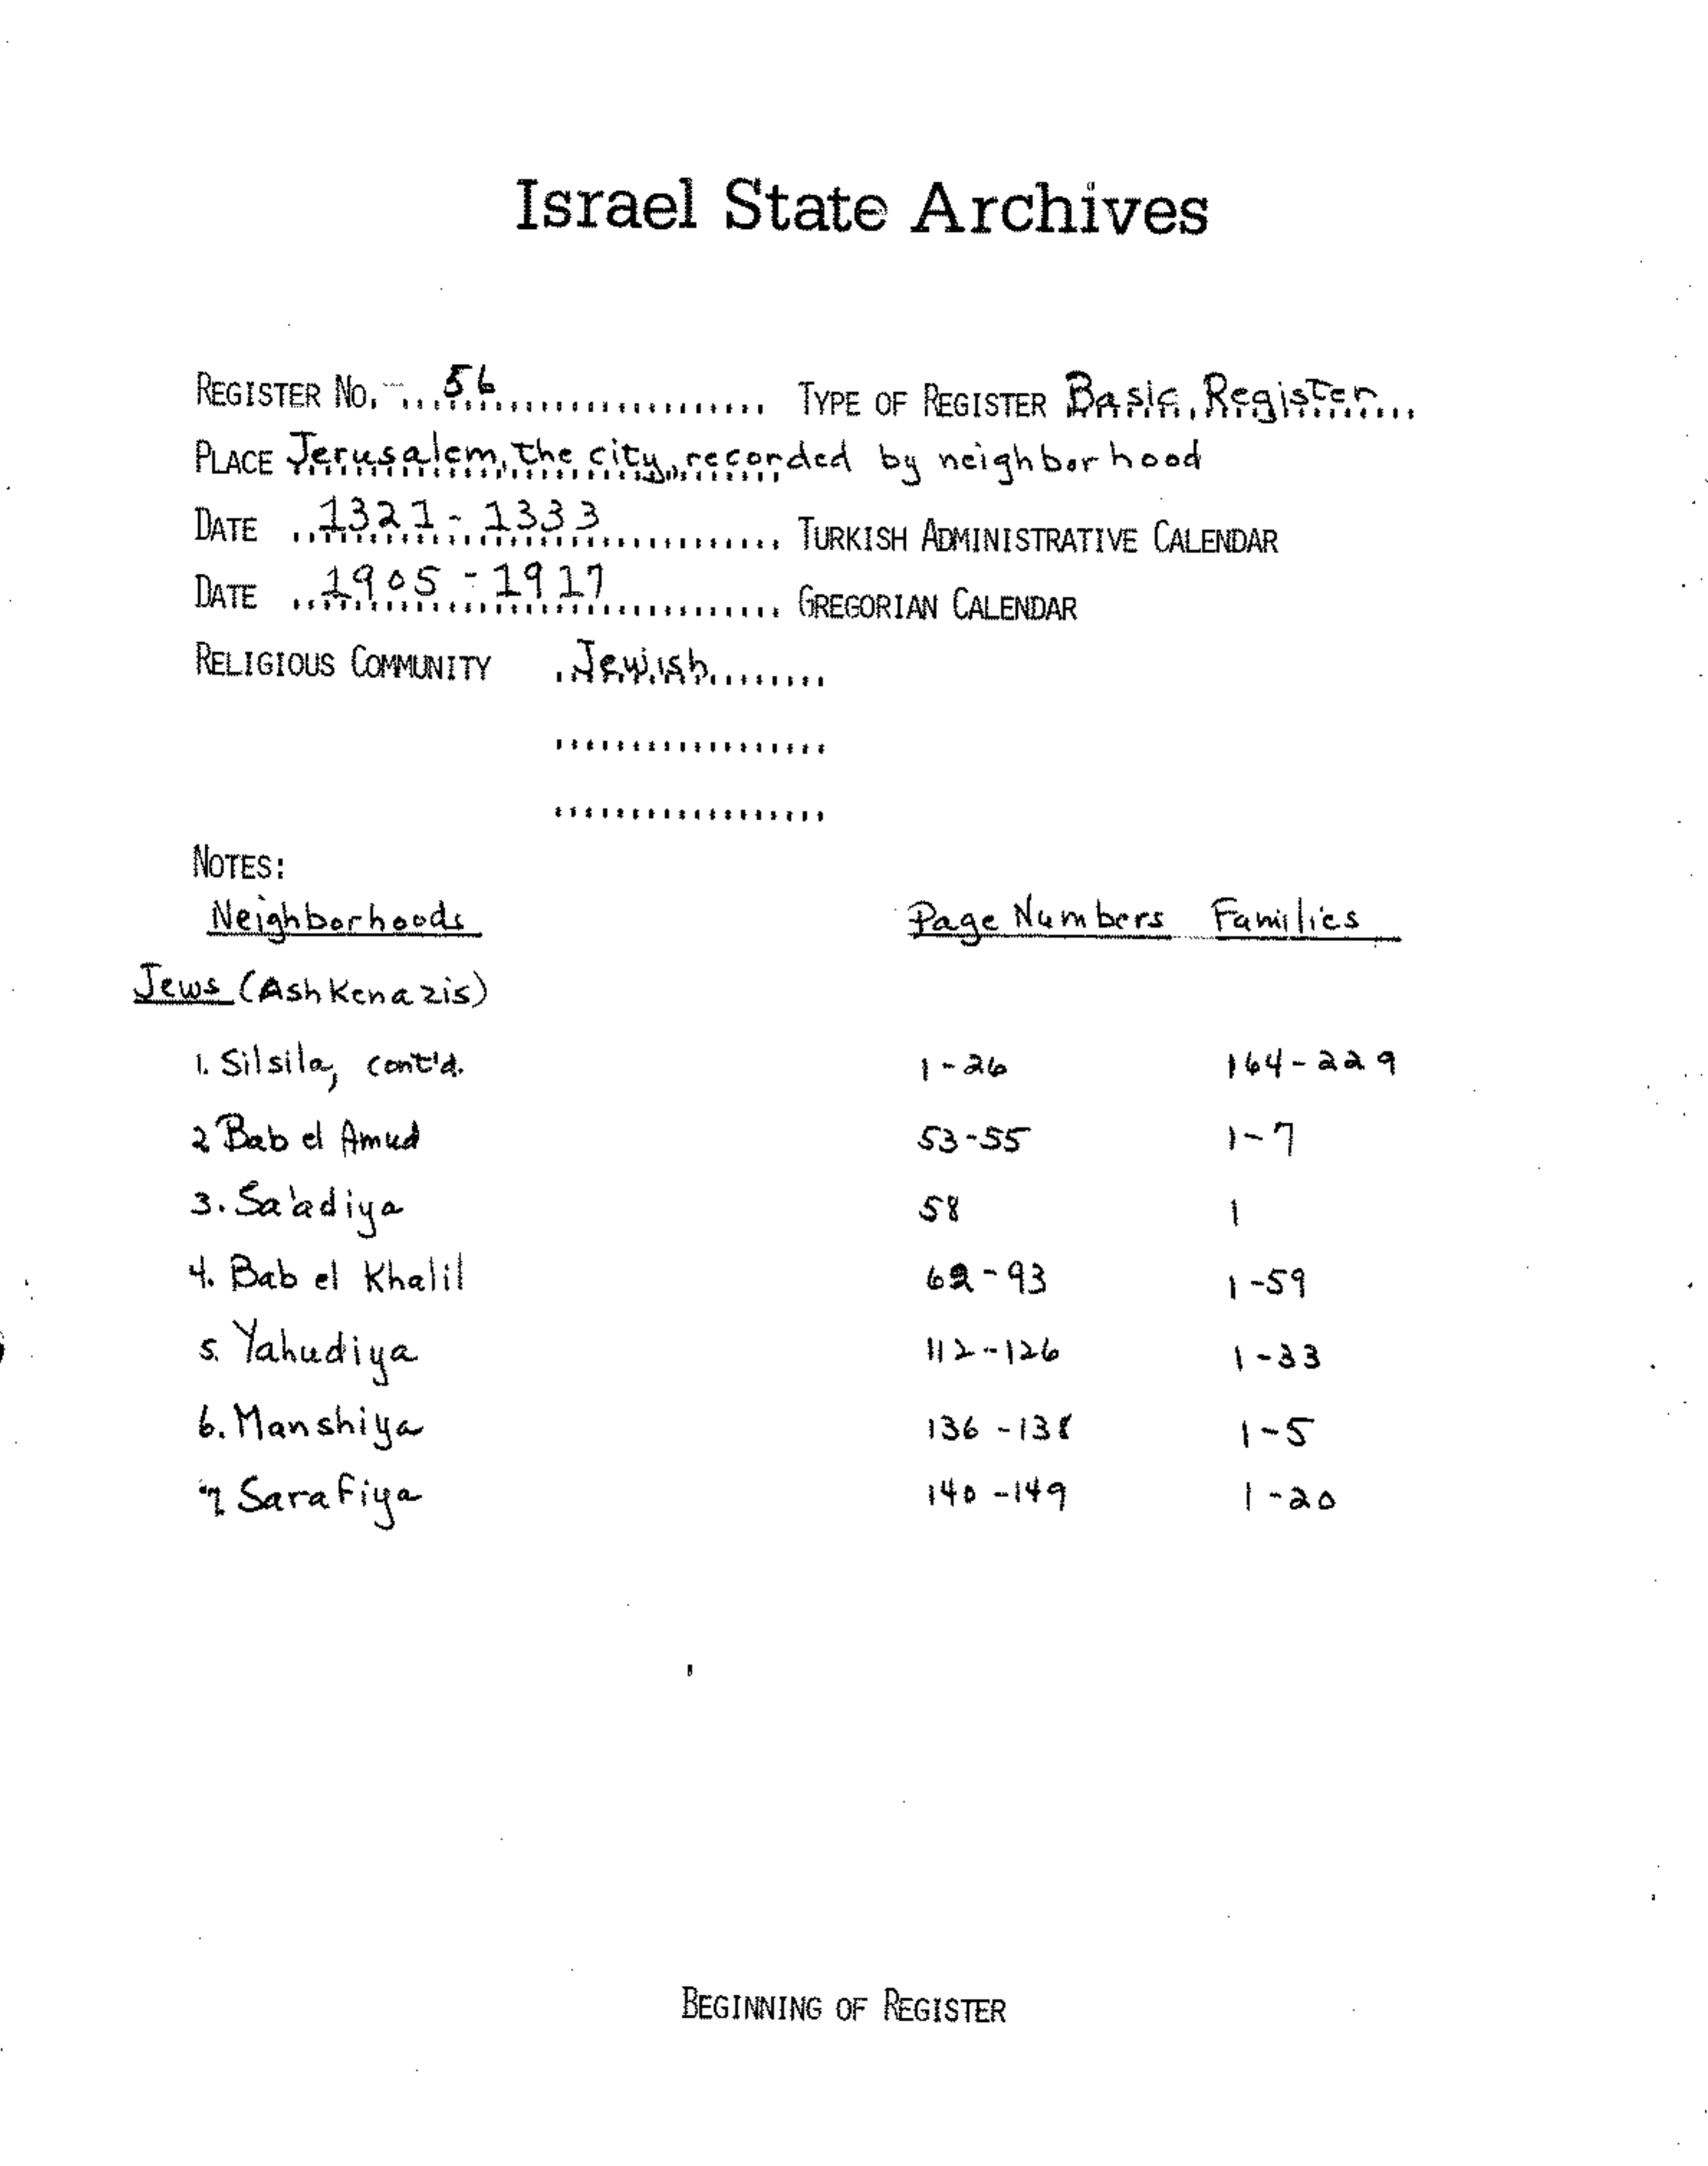 Israel State Archives
REGISTER NO. 56 TYPE OF REGISTER Basic Register
PLACE Jerusalem, the city, recorded by neighborhood
DATE 1321 - 1333 TURKISH ADMINISTRATIVE CALENDAR
DATE 1905 - 1917 GREGORIAN CALENDAR
RELIGIOUS COMMUNITY Jewish
NOTES:
Neighborhoods Page Numbers Families
Jews (Ashkenazis)
1. Silsila, cont'd. 1-26 164-229
2 Bab el Amud 53-55 1-7
3. Sa'adiya 58 1
4. Bab el Khalil 62-93 1-59
5. Yahudiya 112-126 1-33
6. Manshiya 136-138 1-5
7 Sarafiya 140-149 1-20
BEGINNING OF REGISTER